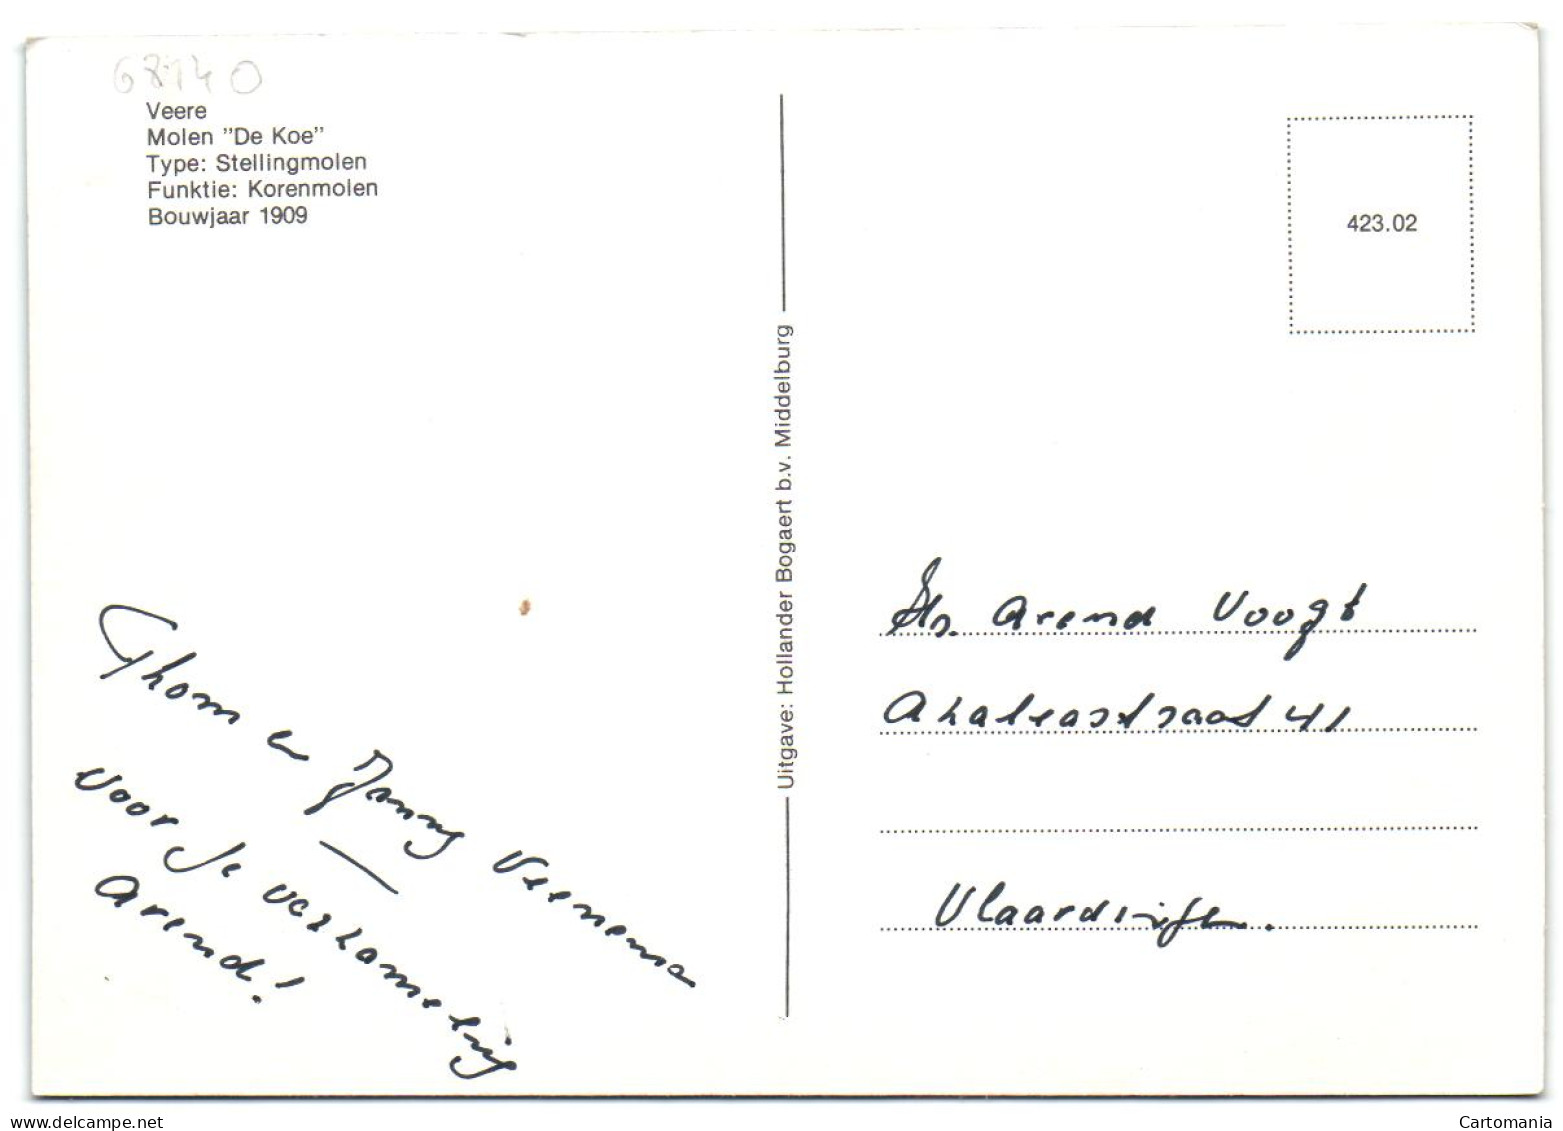 68140
Veere
Molen "De Koe"
Type: Stellingmolen
Funktie: Korenmolen
Bouwjaar 1909
423.02
Uitgave: Hollander Bogaert b.v. Middelburg
Arend Voogt
Azaleastraat 41
Vlaardingen.
Thom en Janny Veenema
voor je verzameling
Arend!
www.delcampe.net
Cartomania